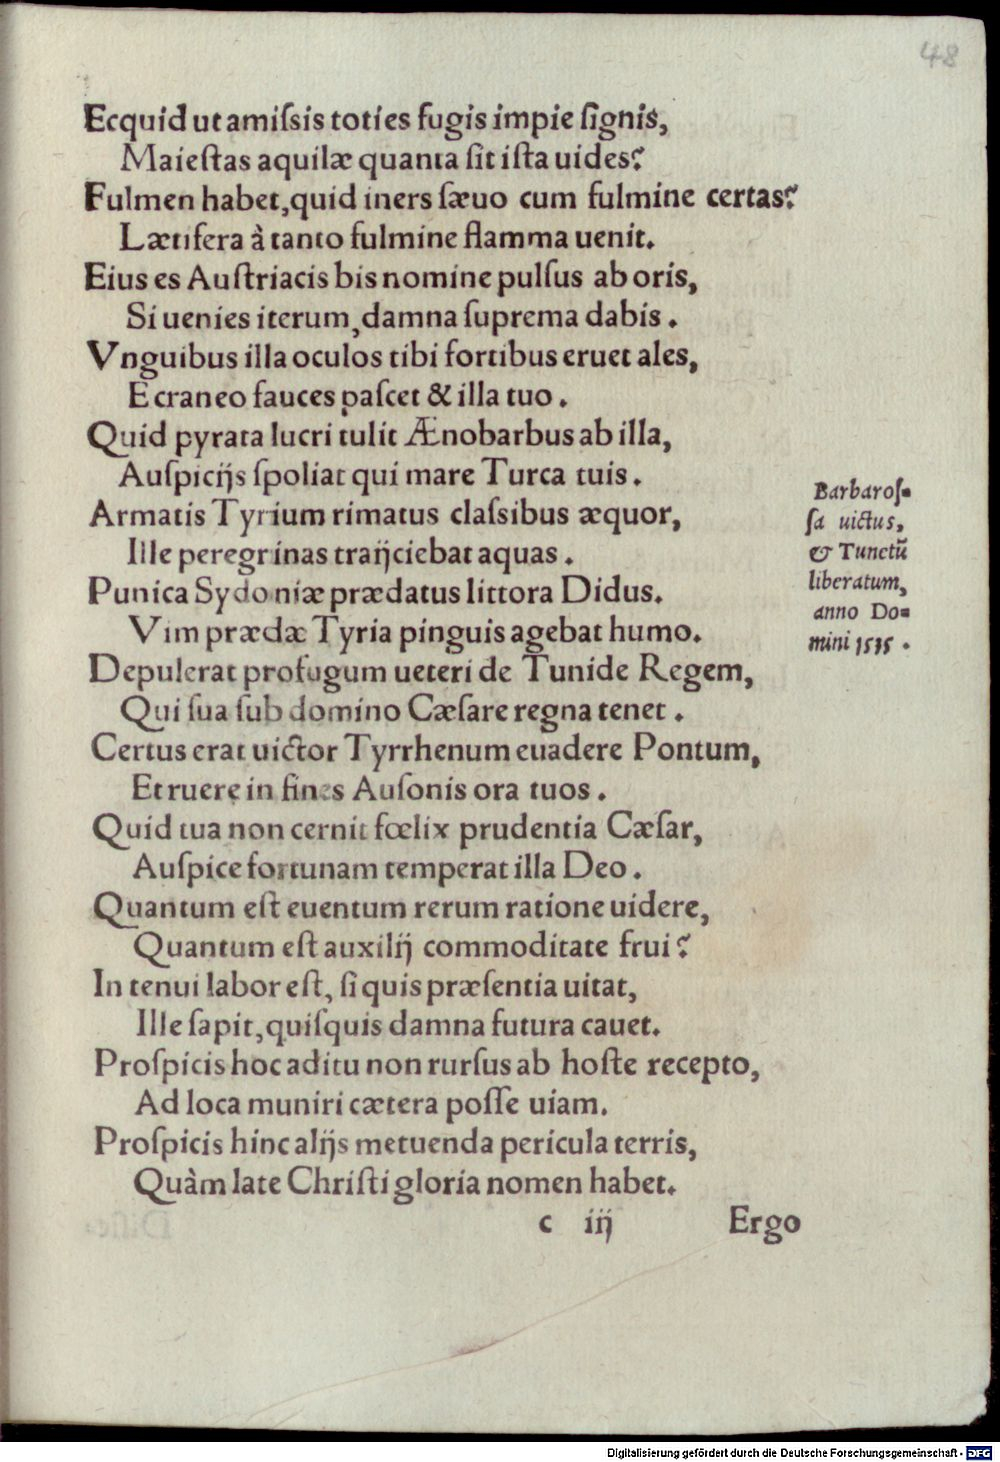 48
Ecquid ut amiſsis toties fugis impie ſignis,
Maieſtas aquilæ quanta ſit iſta uides?
Fulmen habet, quid iners ſæuo cum fulmine certas?
Lætifera à tanto fulmine flamma uenit.
Eius es Auſtriacis bis nomine pulſus ab oris,
Si uenies iterum, damna ſuprema dabis.
Vnguibus illa oculos tibi fortibus eruet ales,
E craneo fauces paſcet & illa tuo.
Quid pyrata lucri tulit Ænobarbus ab illa,
Auſpicijs ſpoliat qui mare Turca tuis.
Armatis Tyrium rimatus claſsibus æquor,
Ille peregrinas traijciebat aquas.
Punica Sydoniæ prædatus littora Didus.
Vim prædæ Tyria pinguis agebat humo.
Depulerat profugum ueteri de Tunide Regem,
Qui ſua ſub domino Cæſare regna tenet.
Certus erat uictor Tyrrhenum euadere Pontum,
Et ruere in fines Auſonis ora tuos.
Quid tua non cernit fœlix prudentia Cæſar,
Auſpice fortunam temperat illa Deo.
Quantum eſt euentum rerum ratione uidere,
Quantum eſt auxilij commoditate frui?
In tenui labor eſt, ſi quis præſentia uitat,
Ille ſapit, quiſquis damna futura cauet.
Proſpicis hoc aditu non rurſus ab hoſte recepto,
Ad loca muniri cætera poſſe uiam.
Proſpicis hinc alijs metuenda pericula terris,
Quàm late Chriſti gloria nomen habet.
c iij Ergo
Barbaroſ=
ſa uictus,
& Tunetũ
liberatum,
anno Do=
mini 1535.
Digitalisierung gefördert durch die Deutsche Forschungsgemeinschaft - DFG